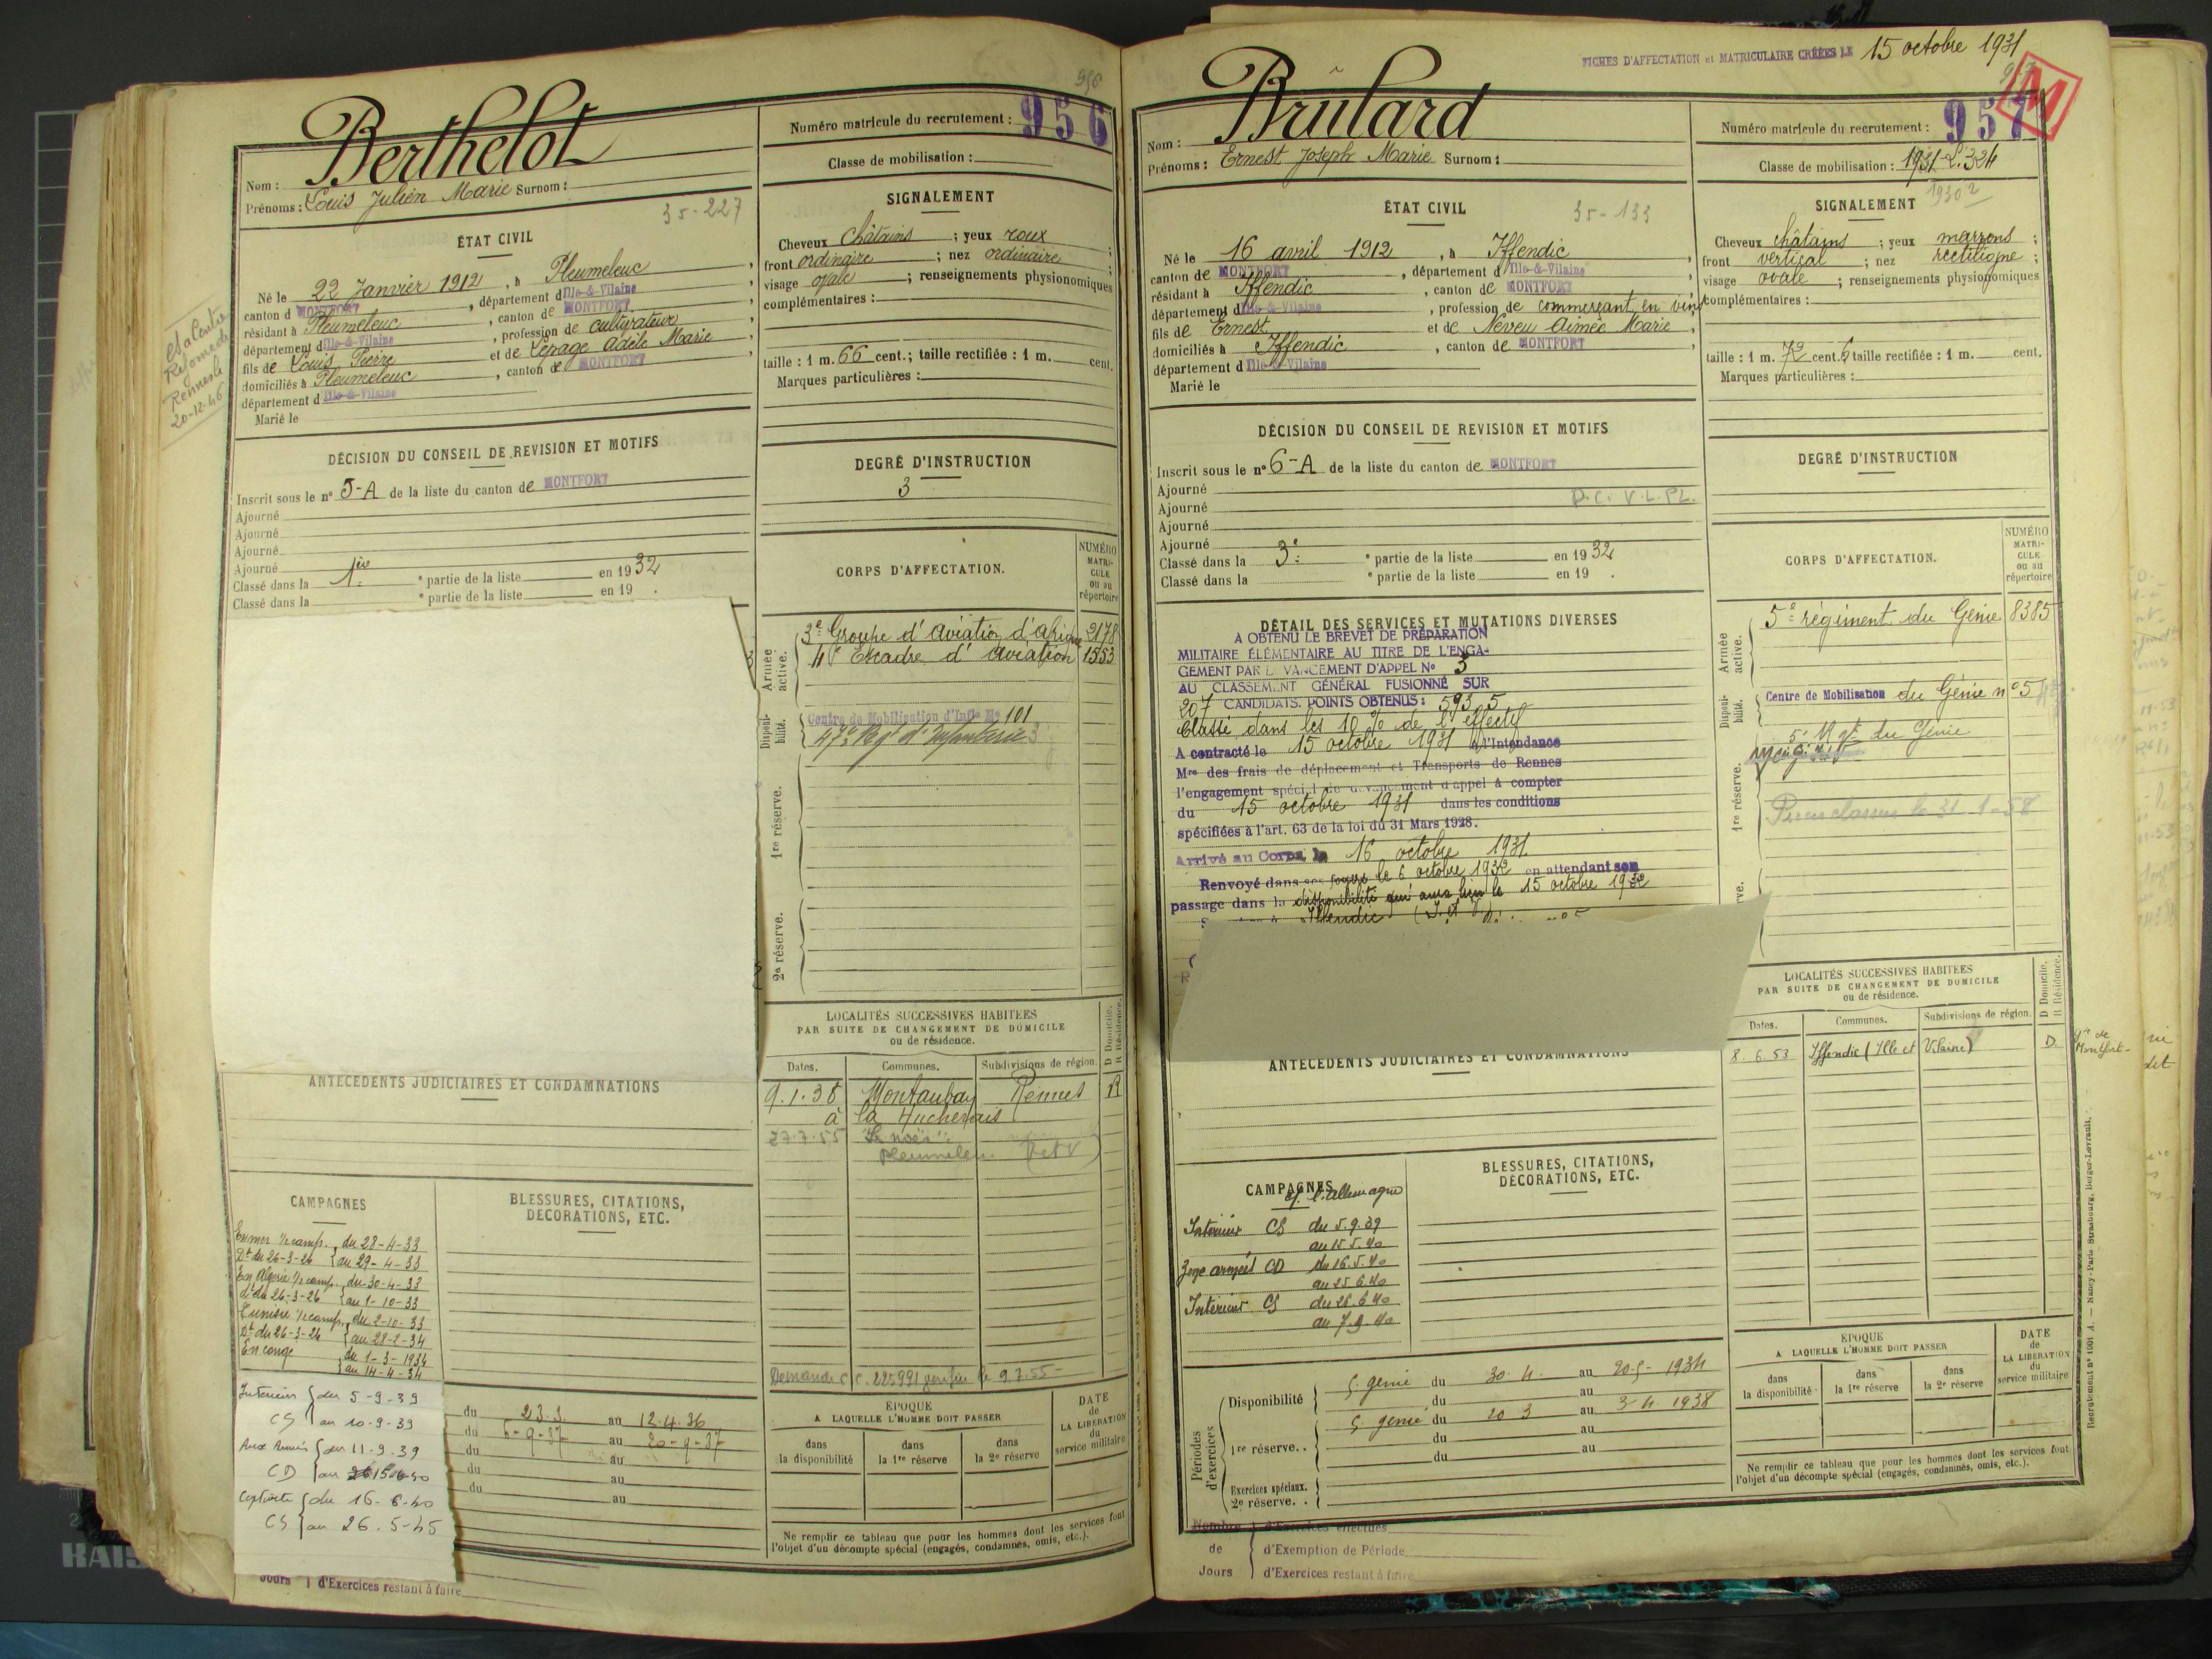 956
Berthelot
Nom :
Prénoms : Louis Julien Marie Surnom :
35-227
ÉTAT CIVIL
Né le 22 Janvier 1912, à Pleumeleuc,
canton d MONTFORT, département d Ille-&-Vilaine
résidant à Pleumeleuc, canton de MONTFORT
département d Ille-&-Vilaine, profession de cultivateur
fils de Louis Pierre et de Lepage Adèle Marie,
domiciliés à Pleumeleuc, canton de MONTFORT
département d Ille-&-Vilaine
Marié le
Rennes le
20-12-46
DÉCISION DU CONSEIL DE REVISION ET MOTIFS
Inscrit sous le n° 5-A de la liste du canton de MONTFORT
Ajourné
Ajourné
Ajourné
Ajourné
Classé dans la 1ère e partie de la liste en 1932
Classé dans la e partie de la liste en 19 .
ANTÉCÉDENTS JUDICIAIRES ET CONDAMNATIONS
CAMPAGNES
En mer 1/2 camp. du 28-4-33
Dt du 26-3-26 au 29-4-33
En Algérie 1/2 camp. du 30-4-33
dt du 26-3-26 au 1-10-33
Tunisie 1/2 camp. du 2-10-33
Dt du 26-3-26 au 28-2-34
En congé du 1-3-1934
au 14-4-34
Intérieur du 5-9-39
CS au 10-9-39
Aux Armées du 11-9-39
CD au 15-6-40
Captivité du 16-6-40
CS au 26.5-45
BLESSURES, CITATIONS,
DÉCORATIONS, ETC.
du 23.3. au 12.4.36
du 6-9-37 au 20-9-37
du au
du au
du au
Jours d'Exercices restant à faire
Numéro matricule du recrutement : 956
Classe de mobilisation :
SIGNALEMENT
Cheveux châtains ; yeux roux ;
front ordinaire ; nez ordinaire ;
visage ovale ; renseignements physionomiques
complémentaires :
taille : 1 m. 66 cent.; taille rectifiée : 1 m. cent.
Marques particulières :
DEGRÉ D'INSTRUCTION
3
CORPS D'AFFECTATION.
NUMÉRO
MATRI-
CULE
ou au
répertoire
Armée
active.
3e Groupe d'aviation d'Afrique 2178
4e Escadre d'aviation 1553
Disponi-
bilité.
Centre de Mobilisation d'Infie No 101
47e Régt d'Infanterie
1re réserve.
2e réserve.
LOCALITÉS SUCCESSIVES HABITÉES
PAR SUITE DE CHANGEMENT DE DOMICILE
ou de résidence.
D Domicile.
R Résidence.
Dates. Communes. Subdivisions de région.
9.1.38 Montauban Rennes R
à la Hucherais
27.7.55
Demande C.C. 225991 vérifiée le 9.7.55-
ÉPOQUE
A LAQUELLE L'HOMME DOIT PASSER
dans
la disponibilité
dans
la 1re réserve
dans
la 2e réserve
DATE
de
LA LIBÉRATION
du
service militaire
Ne remplir ce tableau que pour les hommes dont les services font
l'objet d'un décompte spécial (engagés, condamnés, omis, etc.).
FICHES D'AFFECTATION et MATRICULAIRE CRÉÉES LE 15 octobre 1931
M
Brûlard
Nom :
Prénoms : Ernest Joseph Marie Surnom :
ÉTAT CIVIL
35-133
Né le 16 avril 1912, à Iffendic,
canton de MONTFORT, département d Ille-&-Vilaine
résidant à Iffendic, canton de MONTFORT
département d Ille-&-Vilaine, profession de commerçant en vins
fils de Ernest et de Neveu Aimée Marie,
domiciliés à Iffendic, canton de MONTFORT
département d Ille-&-Vilaine
Marié le
DÉCISION DU CONSEIL DE REVISION ET MOTIFS
Inscrit sous le n° 6-A de la liste du canton de MONTFORT
Ajourné
P.C. V.L. PL.
Ajourné
Ajourné
Ajourné
Classé dans la 3e e partie de la liste en 1932
Classé dans la e partie de la liste en 19 .
DÉTAIL DES SERVICES ET MUTATIONS DIVERSES
A OBTENU LE BREVET DE PRÉPARATION
MILITAIRE ÉLÉMENTAIRE AU TITRE DE L'ENGA-
GEMENT PAR DEVANCEMENT D'APPEL No 5
AU CLASSEMENT GÉNÉRAL FUSIONNÉ SUR
207 CANDIDATS. POINTS OBTENUS : 593,5
Classé dans les 10 % de l'effectif
A contracté le 15 octobre 1931 à l'Intendance
Mre des frais de déplacement et Transports de Rennes
l'engagement spécial de devancement d'appel à compter
du 15 octobre 1931 dans les conditions
spécifiées à l'art. 63 de la loi du 31 Mars 1928.
Arrivé au Corps le 16 octobre 1931
Renvoyé dans ses foyers le 6 octobre 1932 en attendant son
passage dans la disponibilité qui aura lieu le 15 octobre 1932
Iffendic (I. et V.)
ANTÉCÉDENTS JUDICIAIRES ET CONDAMNATIONS
CAMPAGNES
c/. l'Allemagne
Intérieur CS du 5.9.39
au 15.5.40
3me armée CD du 16.5.40
au 25.6.40
Intérieur CS du 26.6.40
au 7.9.40
BLESSURES, CITATIONS,
DÉCORATIONS, ETC.
Périodes
d'exercices
Disponibilité 5. génie du 30.4. au 20-5-1934
du au
1re réserve. . 5. génie du 20 3 au 3-4.1938
du au
du au
Exercices spéciaux.
2e réserve. .
Nombre d'Exercices effectués
de d'Exemption de Période
Jours d'Exercices restant à faire
Numéro matricule du recrutement : 957
Classe de mobilisation : 1931-L.324
1930 2
SIGNALEMENT
Cheveux châtains ; yeux marrons ;
front vertical ; nez rectiligne ;
visage ovale ; renseignements physionomiques
complémentaires :
taille : 1 m. 72 cent. 6 taille rectifiée : 1 m. cent.
Marques particulières :
DEGRÉ D'INSTRUCTION
CORPS D'AFFECTATION.
NUMÉRO
MATRI-
CULE
ou au
répertoire
Armée
active.
5e régiment du Génie 8385
Disponi-
bilité.
Centre de Mobilisation du Génie n° 5
5e Rgt du Génie
1re réserve.
LOCALITÉS SUCCESSIVES HABITÉES
PAR SUITE DE CHANGEMENT DE DOMICILE
ou de résidence.
D Domicile.
R Résidence.
Dates. Communes. Subdivisions de région.
8.6.53 Iffendic (Ille et Vilaine) D
gie de
Montfort-
ÉPOQUE
A LAQUELLE L'HOMME DOIT PASSER
dans
la disponibilité
dans
la 1re réserve
dans
la 2e réserve
DATE
de
LA LIBÉRATION
du
service militaire
Ne remplir ce tableau que pour les hommes dont les services font
l'objet d'un décompte spécial (engagés, condamnés, omis, etc.).
Recrutement n° 1001 A. — Nancy-Paris Strasbourg, Berger-Levrault.